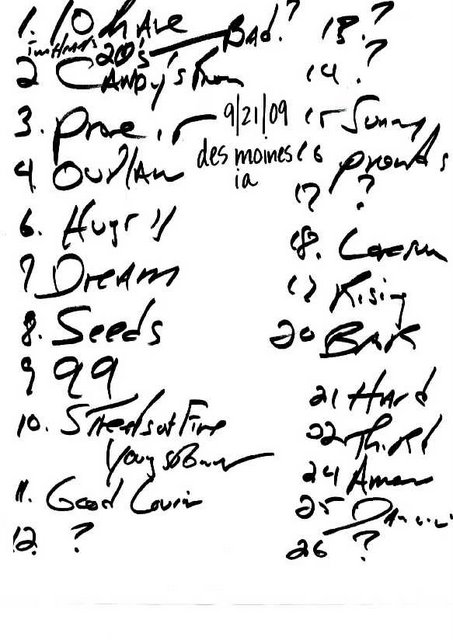 1. 10th Ave
in the Hards 20's Bad?
2 Candy's Room
3. Prove it
4 Outlaw
6. Hugr
7 Dream
8. Seeds
9 99
10. Streets of Fire
Young
11. Good Lovin
12. ?
9/21/09
des moines
ia
13. ?
14. ?
15 Sunny
16 promis
17 ?
18. Lonesm
19 Rising
20 BAR
21 Hard
22 Third
24 Amer
25 Dancin
26 ?